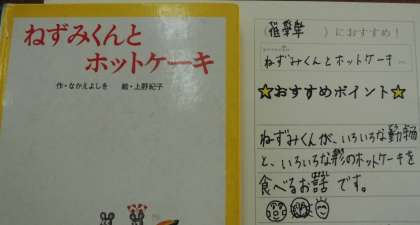 ねずみくんと
ホットケーキ
作・なかえよしを 絵・上野紀子
(低学年 )におすすめ!
ねずみくんとホットケーキ
☆おすすめポイント☆
ねずみくんが、いろいろな動物
と、いろいろな形のホットケーキを
食べるお話です。